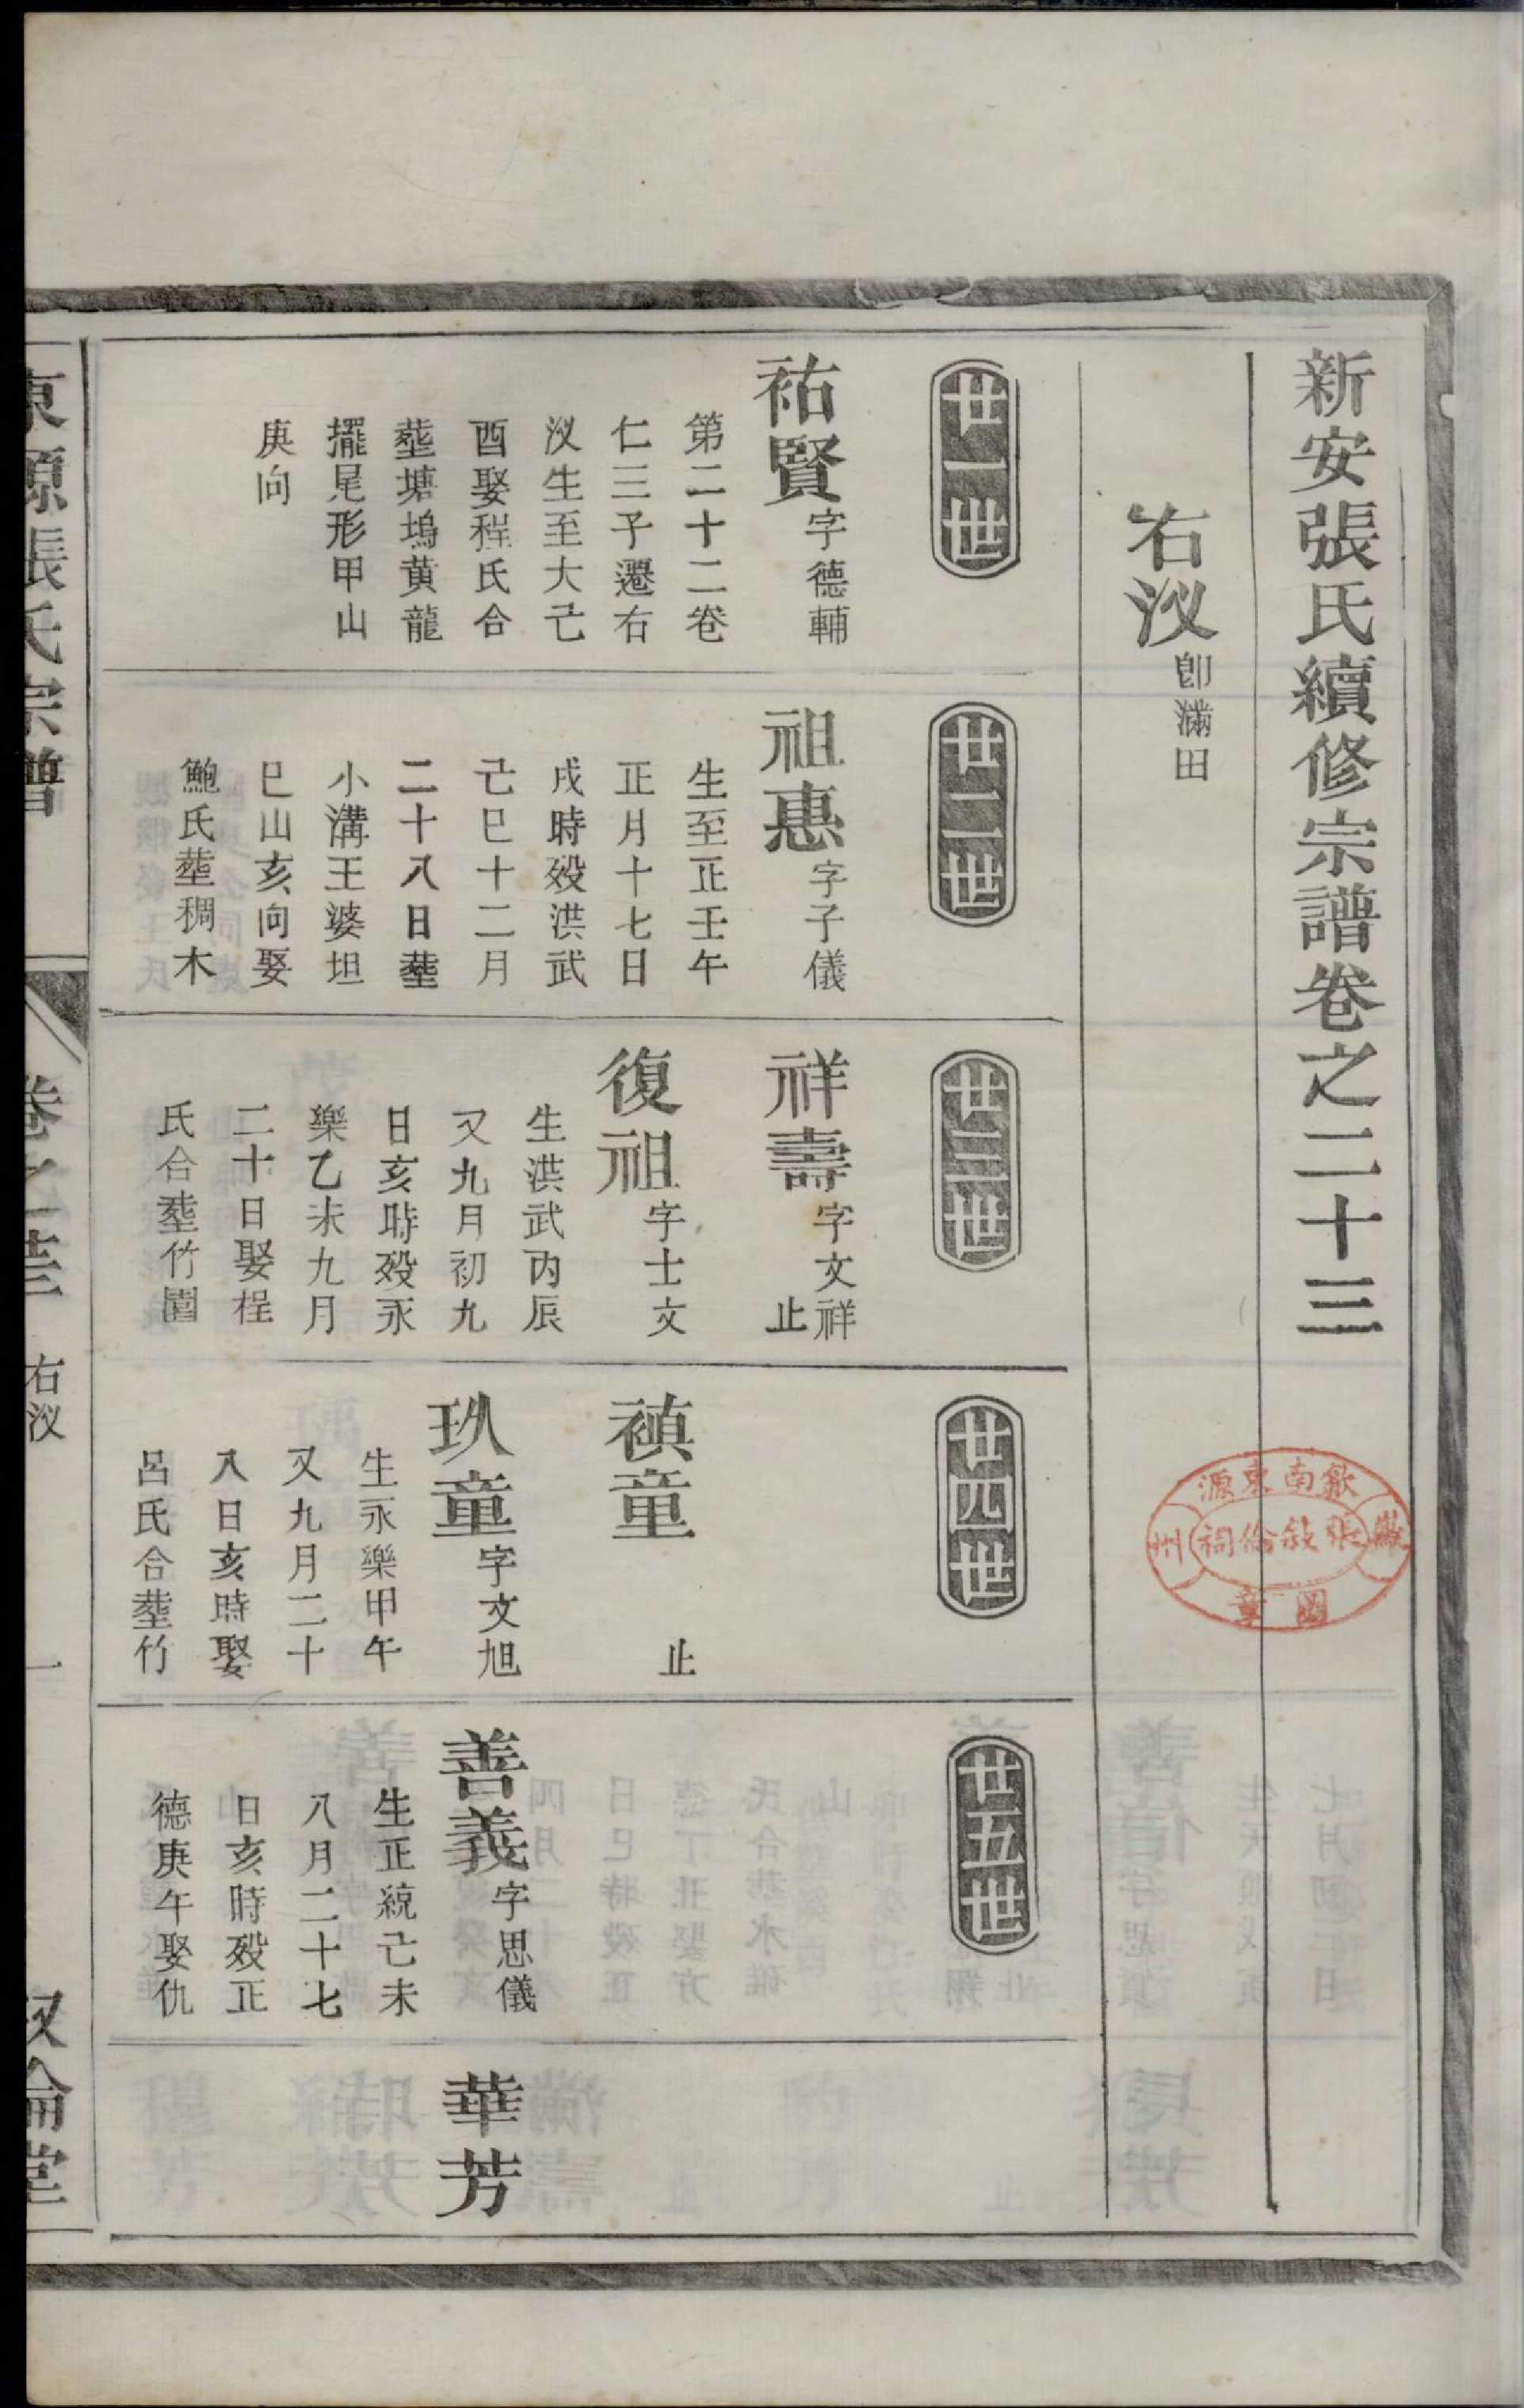 新安張氏續修宗譜卷之二十三
右汊卽滿田
廿一世
祐賢字德輔
第二十二卷
仁三子遷右
汊生至大己
酉娶程氏合
塟塘塢黄龍
擺尾形甲山
庚向
廿二世
祖惠字子儀
生至正壬午
正月十七日
戌時殁洪武
己巳十二月
二十八日塟
小溝王婆坦
巳山亥向娶
鮑氏塟稠木
廿三世
祥壽字文祥
止
復祖字士文
生洪武丙辰
又九月初九
日亥時殁永
樂乙未九月
二十日娶程
氏合塟竹園
廿四世
禎童
止
玖童字文旭
生永樂甲午
又九月二十
八日亥時娶
呂氏合塟竹
廿五世
善義字思儀
生正統己未
八月二十七
日亥時殁正
德庚午娶仇
華芳
東源張氏宗譜
卷之
右汊
一
叙倫堂
歙南東源
張敘倫祠
州
圖章